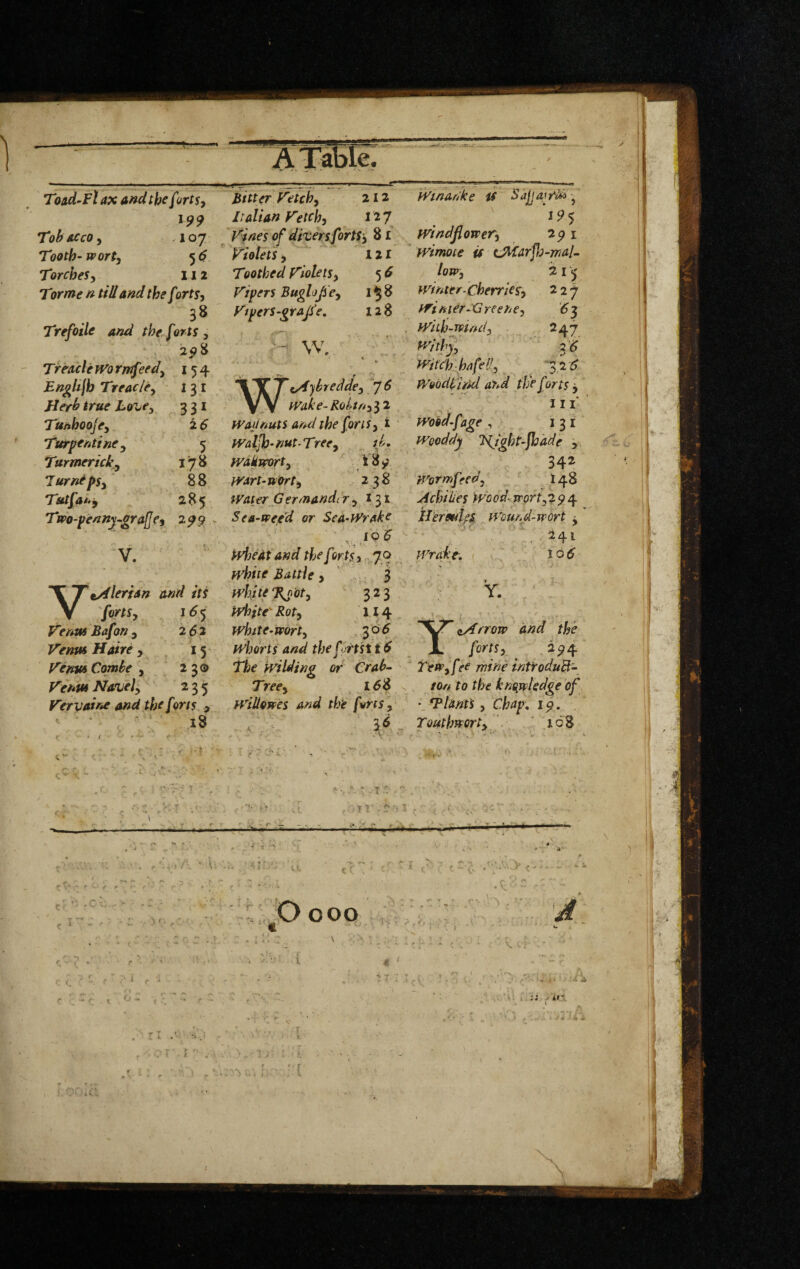 A Table.
Toad-Flax and the sorts,
199
Tobacco, 107
Tooth-wort, 56
Torches, 112
Tormentill and the sorts,
38
Trefoile and the sorts,
298
Treacle Wormseed, 154
English Treacle, 131
Herb true Love, 331
Tunhoofe, 26
Turpentine, 5
Turmerick, 178
Turneps, 88
Tutsan, 285
Two-penny-grasse, 299
V.
VAlerian and its
sorts, 165
Venus Bason, 262
Venus Haire, 15
Venus Combe, 230
Venus Navel, 235
Vervaine and the sorts,
18
Bitter Vetch, 212
Italian Vetch, 127
Vines of divers sorts, 81
Violets, 121
Toothed Violets, 56
Vipers Buglosse, 158
Vipers-grasse. 128
W.
WAybredde, 76
Wake-Robin, 32
Wallnuts and the sorts, 1
Walsh-nut-Tree, ib.
Wallwort, 189
Wart-wort, 238
Water Germander, 131
Sea-weed or Sea-Wrake
106
Wheat and the sorts, 70
White Battle, 3
White Root, 323
White Rot, 114
White-wort, 306
Whorts and the sorts 16
The Wilding or Crab-
Tree, 168
Willowes and the sorts,
36
Winanke is Sassafras,
195
Windflower, 291
Wimote is Marsh-mal-
low, 215
Winter-Cherries, 227
Winter-Greene, 63
With-wind, 247
Withy, 36
Witch hasell, 326
Woodbind and the sorts,
111
Wood-sage, 131
Wooddy Night-shade,
342
Wormseed, 148
Achilles Wood-wort, 294
Hercules Wound-wort,
241
Wrake. 106
Y.
YArrow and the
sorts, 294
Yew, see mine introduct-
ion to the knowledge of
Plants, Chap. 19.
Youthwort, 108
Oooo
A